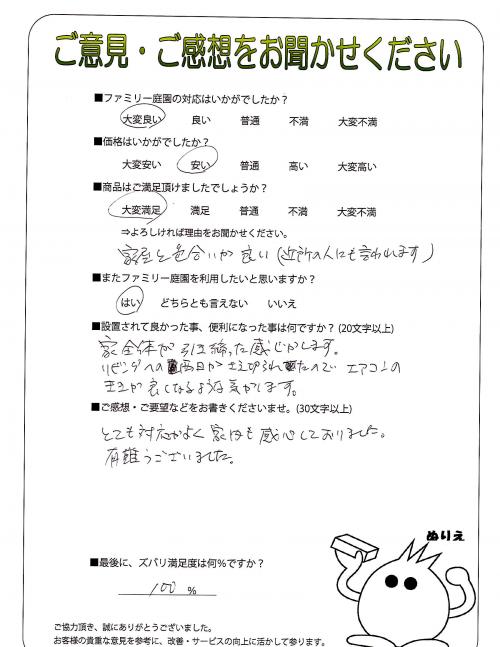 ご意見・ご感想をお聞かせください
■ファミリー庭園の対応はいかがでしたか？
大変良い 良い 普通 不満 大変不満
■価格はいかがでしたか？
大変安い 安い 普通 高い 大変高い
■商品はご満足頂けましたでしょうか？
大変満足 満足 普通 不満 大変不満
⇒よろしければ理由をお聞かせください。
家屋と色合いが良い(近所の人にも言われます)
■またファミリー庭園を利用したいと思いますか？
はい どちらとも言えない いいえ
■設置されて良かった事、便利になった事は何ですか？(20文字以上)
家全体が引き締った感じがします。
リビングへの西日がさえぎられたので エアコンの
が良くなるような気がします。
■ご感想・ご要望などをお書きくださいませ。(30文字以上)
とても対応がよく 家内も感心しておりました。
有難うございました。
ぬりえ
■最後に、ズバリ満足度は何％ですか？
100 %
ご協力頂き、誠にありがとうございました。
お客様の貴重な意見を参考に、改善・サービスの向上に活かして参ります。